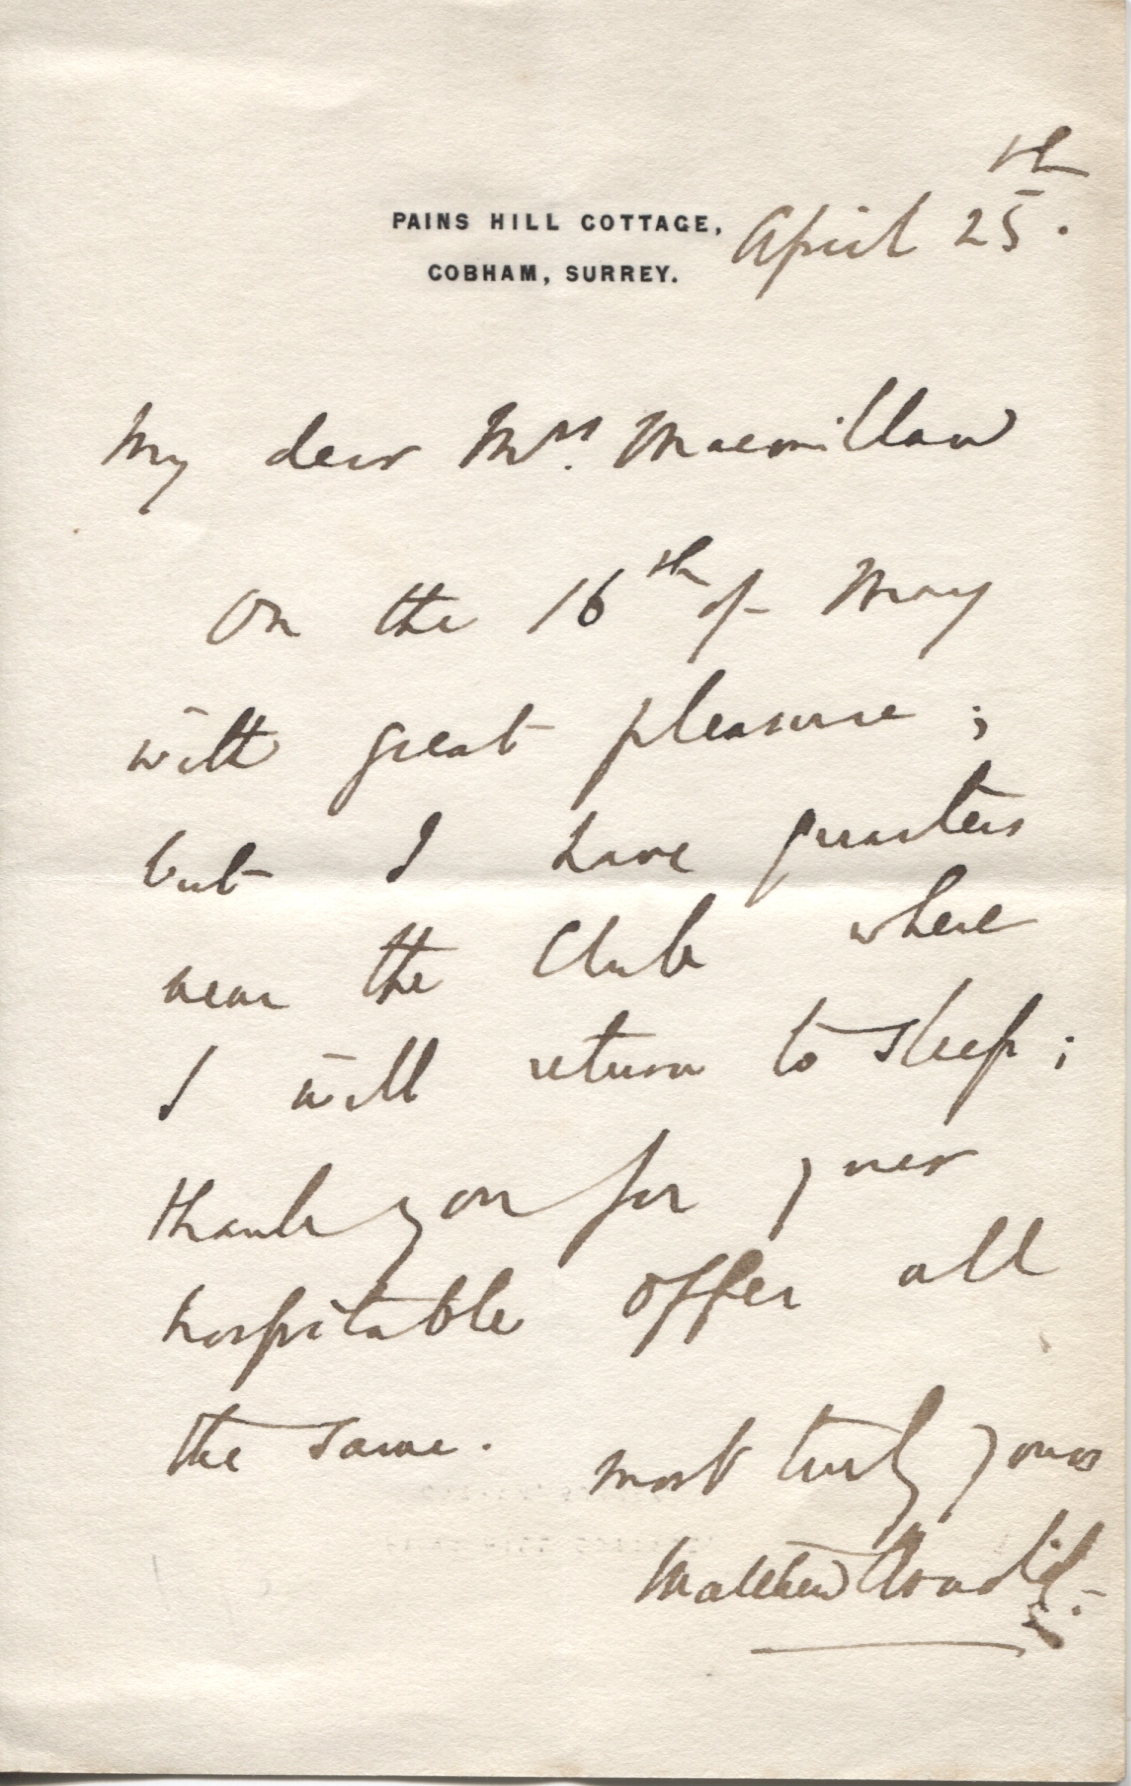 PAINS HILL COTTAGE,
COBHAM, SURREY.
April 25th.
My dear Mrs. Macmillan
On the 16th of May
with great pleasure;
but I have quarters
near the Club where
I will return to sleep;
thank you for your
hospitable offer all
the same.
most truly yours
Matthew Arnold.